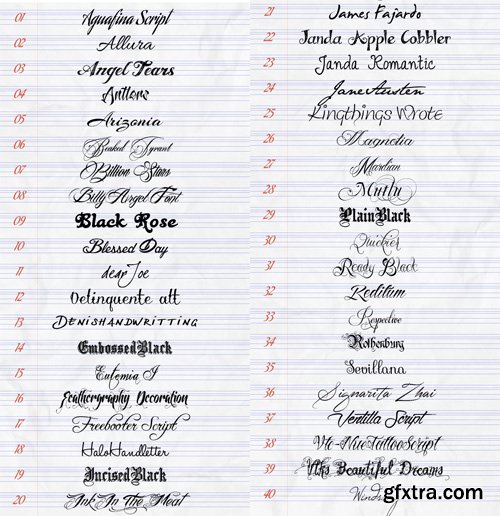 01 Aguafina Script
02 Allura
03 Angel Tears
04 Antlers
05 Arizonia
06 Beaked Tyrant
07 Billion Stars
08 Billy Argel Font
09 Black Rose
10 Blessed Day
11 dearJoe
12 Delinquente att
13 DENISHANDWRITTING
14 EmbossedBlack
15 Eutemia I
16 Feathergraphy Decoration
17 Freebooter Script
18 HaloHandletter
19 IncisedBlack
20 Ink In The Meat
21 James Fajardo
22 Janda Apple Cobbler
23 Janda Romantic
24 JaneAusten
25 Kingthings Wrote
26 Magnolia
27 Mardian
28 Mutlu
29 PlainBlack
30 Quickier
31 Ready Black
32 Reditum
33 Respective
34 Rothenburg
35 Sevillana
36 Signarita Zhai
37 Ventilla Script
38 Vtc-NueTattooScript
39 Vtks Beautiful Dreams
40
gfxtra.com